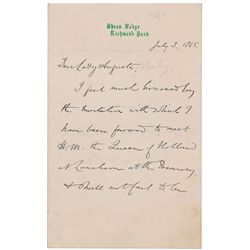 Sheen Lodge
Richmond Park
July 3, 1865.
Dear Lady Augusta,
I feel much honoured by
the invitation with which I
have been favoured to meet
H.M. the Queen of Holland
at Luncheon at the Deanery,
& shall not fail to be